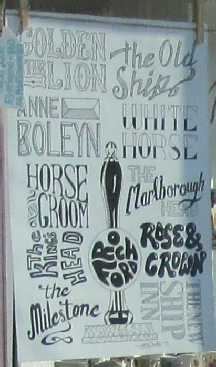 GOLDEN
LION
The Old
Ship
ANNE
BOLEYN
WHITE
HORSE
HORSE
GROOM
THE
Marlborough
HEAD
the
KING'S
HEAD
ROCHFORD
ROSE &
CROWN
the
Milestone
THE NEW
SHIP
INN